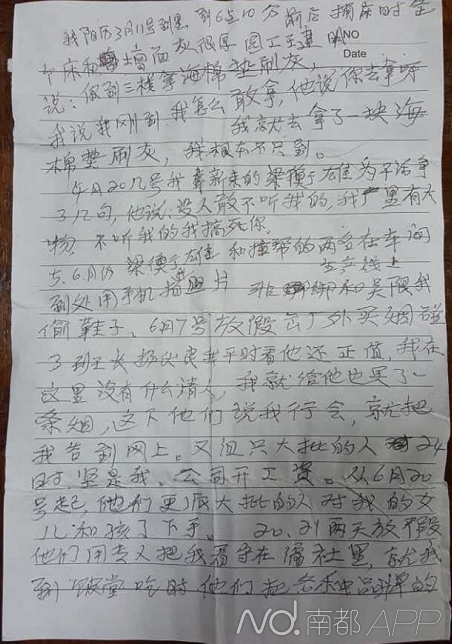 我阳历3月11号到   到6点10分 前后 搞床时
NO
Date
个床和墙面灰很厚 园工王建
说：你到三楼拿海棉垫刷灰，
我说我刚到 我怎么敢拿，他说你去拿呀
我就去拿了一块海
棉垫刷灰，我根本不只到。
4月20几号我 新来的梁 雄为干活争
3几句，他说，没人敢不听我的，我厂里有大
物 不听我的我搞死你。
5.6月份 梁 雄 和 帮的两名在车间
生产线上
到处用手机 照片 和 我
偷鞋子，6月7号放假去厂外买烟碰
3班长杨 我平时看他还正值，我在
这里没有什么情人，我就给他也买了一
条烟，这下他们说我行会，就把
我 到网上。又组只大批的人 24
时坚是我，公司开工资。从6月20
号起，他们更 大批的人对我的女
儿和孩了下手。20，21两天放假
他们用专人把我看守在 社里，就我
到饭堂吃时，他们 的
N. 南都APP